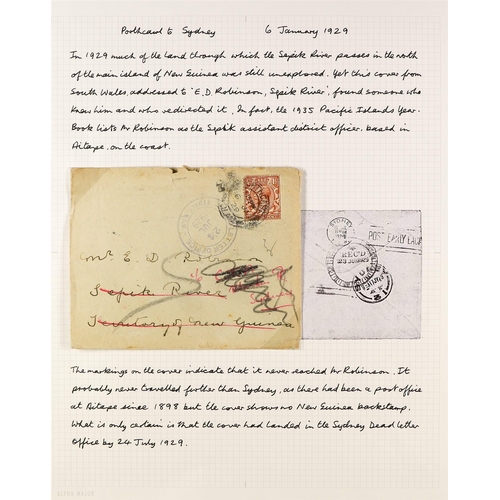 Porthcawl to Sydney 6 January 1929
In 1929 much of the land through which the Sepik River passes in the north
of the main island of New Guinea was still unexplored. Yet this cover from
South Wales, addressed to 'E.D. Robinson, Sepik River', found someone who
knew him and who redirected it. In fact, the 1935 Pacific Islands Year-
Book lists Mr Robinson as the Sepik assistant district officer, based in
Aitape, on the coast.
Mr E D Robinson
Sepik River
Territory of New Guinea
SYDNEY
POST EARLY EACH
REC'D
The markings on the cover indicate that it never reached Mr Robinson. It
probably never travelled further than Sydney, as there had been a post office
at Aitape since 1898 but the cover shows no New Guinea backstamp.
What is only certain is that the cover had landed in the Sydney Dead Letter
Office by 24 July 1929.